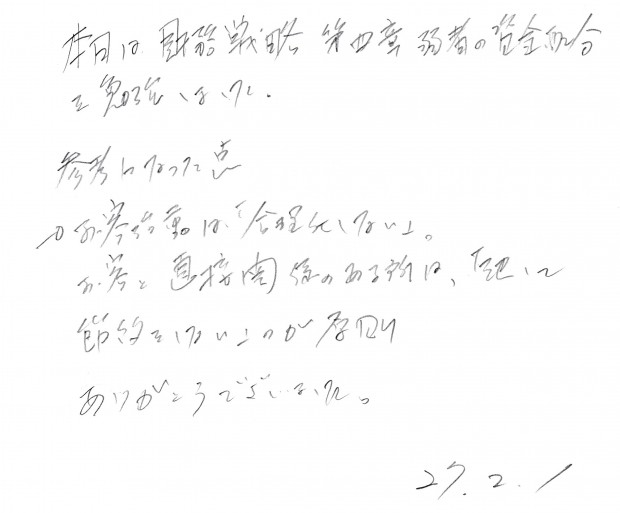 本日は財務戦略 第四章 弱者の資金配分
を勉強しました。
参考になった点
1) お客活動は「合理化しない」。
お客と直接関係のある所は、「決して
節約をしない」のが原則
ありがとうございました。
27.2.1